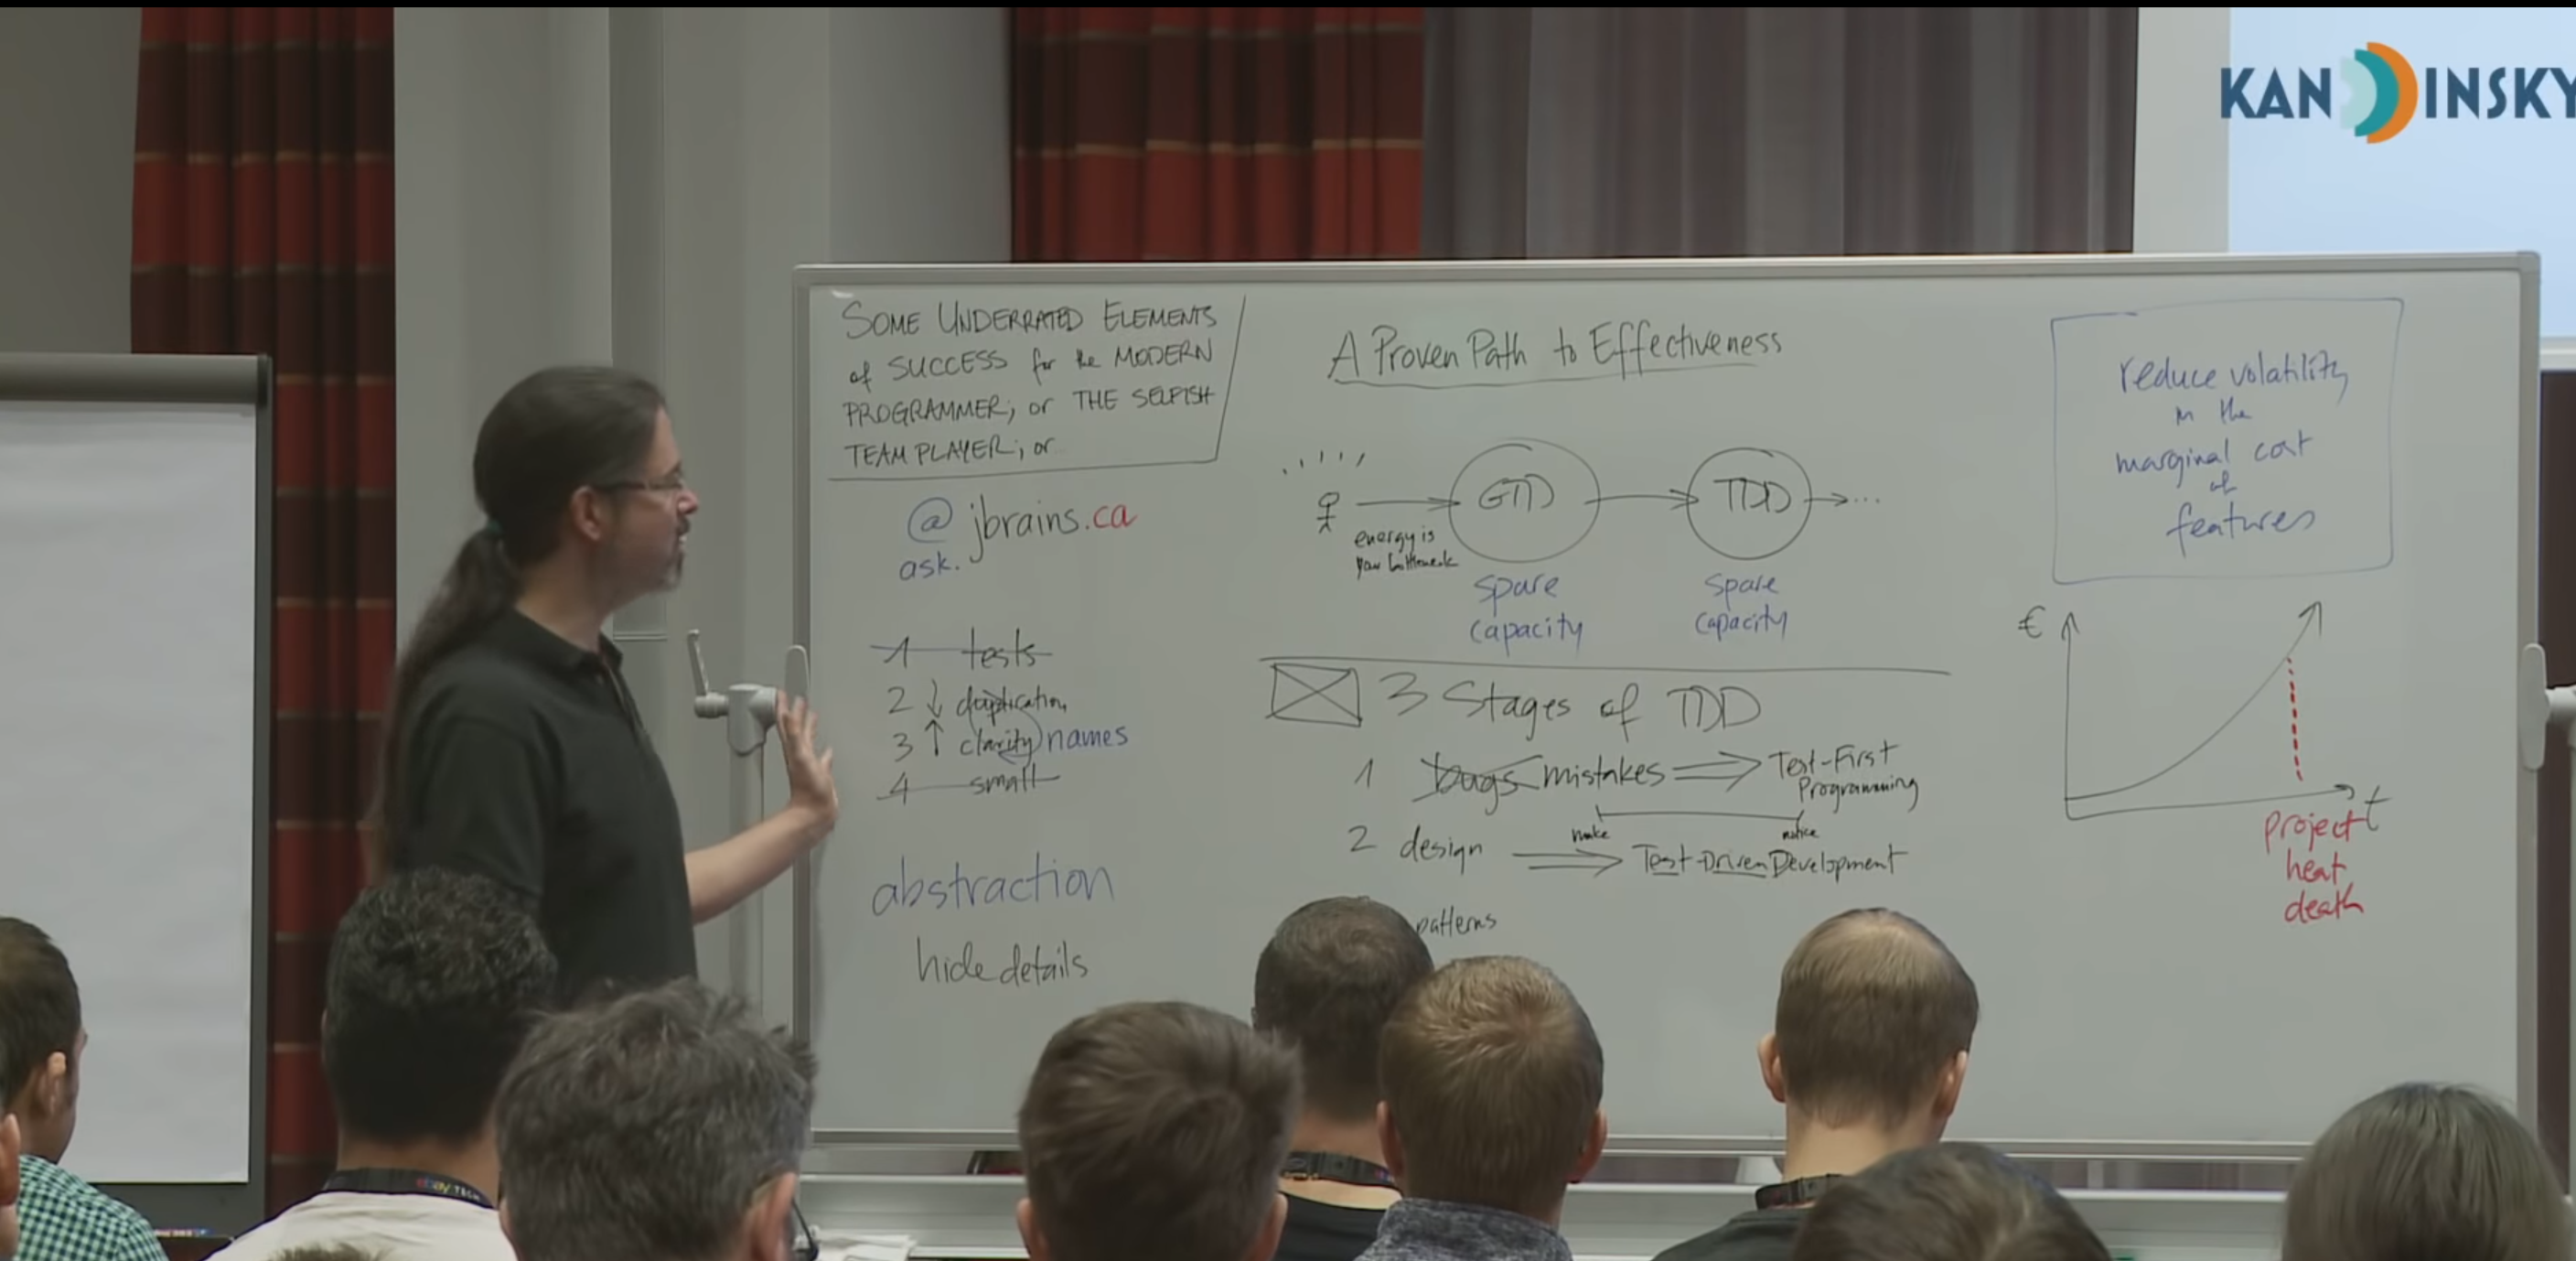 KANDINSKY
SOME UNDERRATED ELEMENTS
of SUCCESS for the MODERN
PROGRAMMER; or THE SELFISH
TEAM PLAYER; or
@jbrains.ca
ask.
1 tests
2 ↓ duplication
3 ↑ clarity names
4 small
abstraction
hide details
A Proven Path to Effectiveness
GTD
TDD
...
energy is
your bottleneck
spare
capacity
spare
capacity
3 Stages of TDD
1 bugs mistakes ⇒ Test-First
Programming
make
notice
2 design ⇒ Test-Driven Development
patterns
reduce volatility
in the
marginal cost
of
features
€
t
project
heat
death
ebay TECH